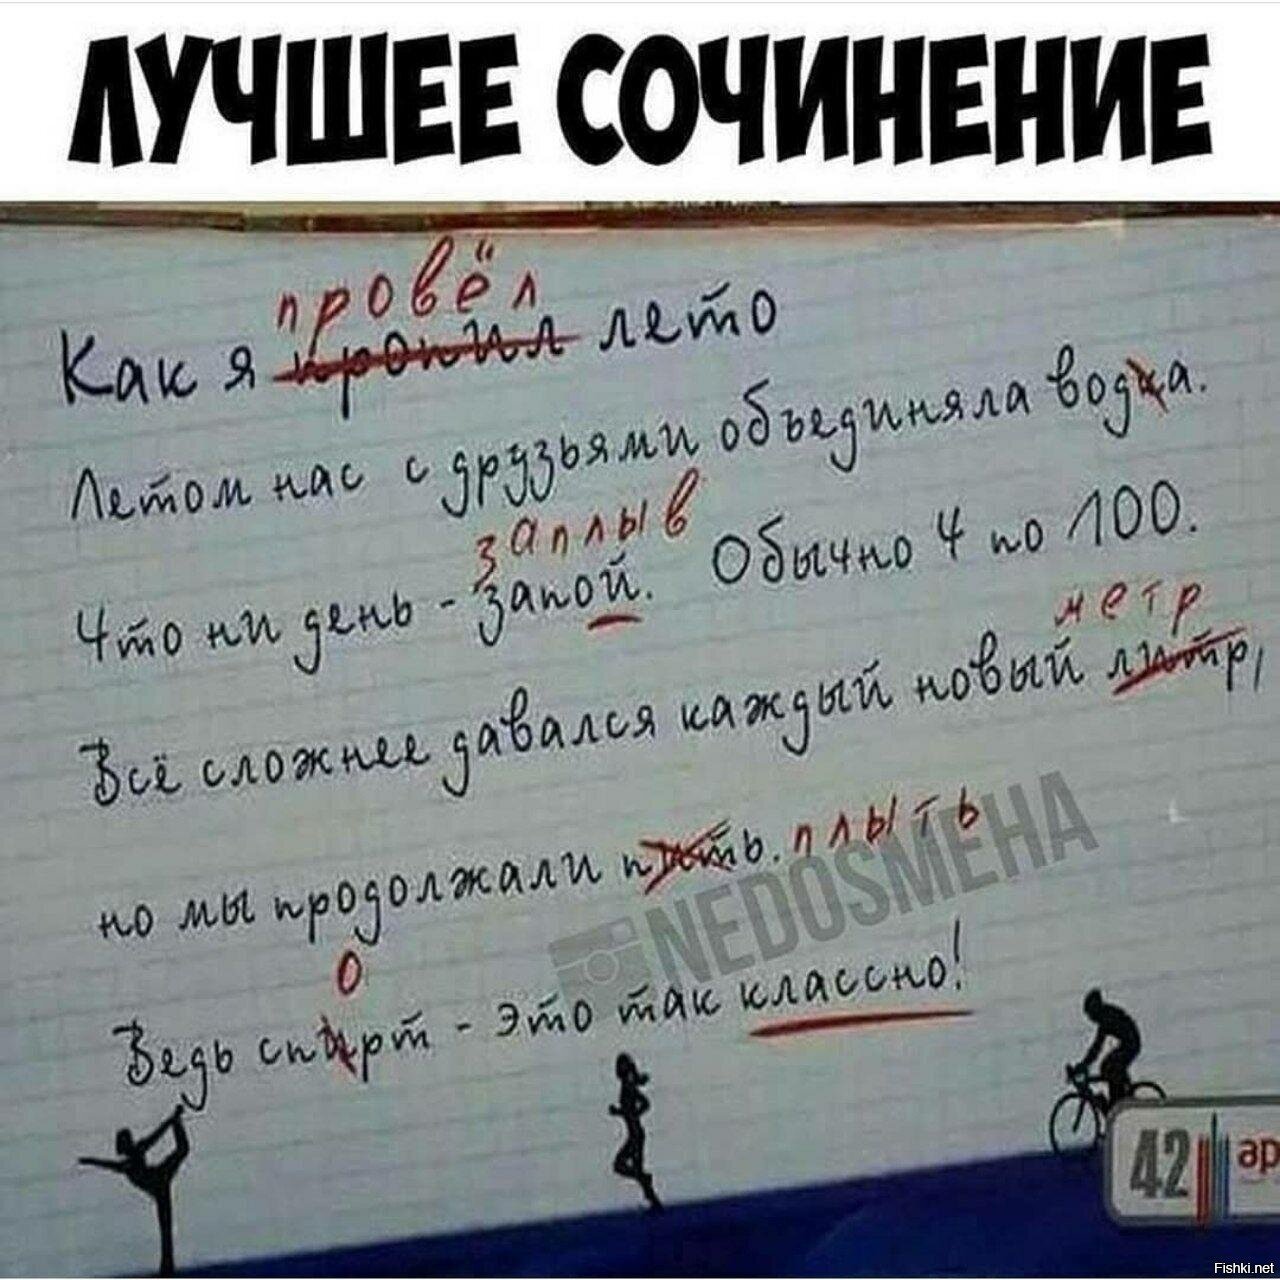 ЛУЧШЕЕ СОЧИНЕНИЕ
провёл
Как я пропил лето
Летом нас с друзьями объединяла водка.
заплыв
Что ни день - запой. Обычно 4 по 100.
метр
Всё сложнее давался каждый новый литр,
но мы продолжали пить. плыть
о
Ведь спирт - это так классно!
NEDOSMEHA
42 ар
Fishki.net